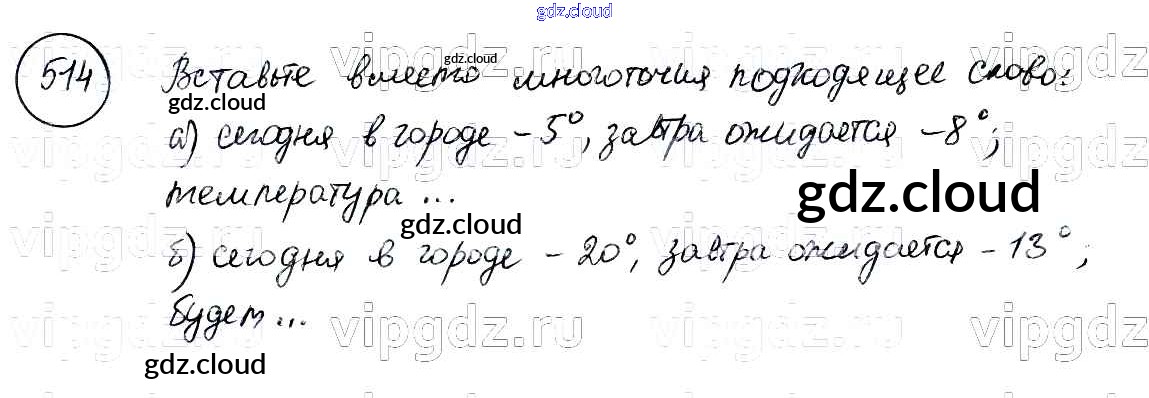 gdz.cloud
514 Вставьте вместо многоточия подходящее слово:
gdz.cloud
gdz.cloud
а) сегодня в городе -5°, завтра ожидается -8°;
vipgdz.ru vipgdz.ru vipgdz.ru vipgdz.ru
температура ...
gdz.cloud
gdz.cloud
б) сегодня в городе -20°, завтра ожидается -13°;
vipgdz.ru vipgdz.ru vipgdz.ru vipgdz.ru
будет ...
vipgdz.ru vipgdz.ru vipgdz.ru vipgdz.ru
gdz.cloud